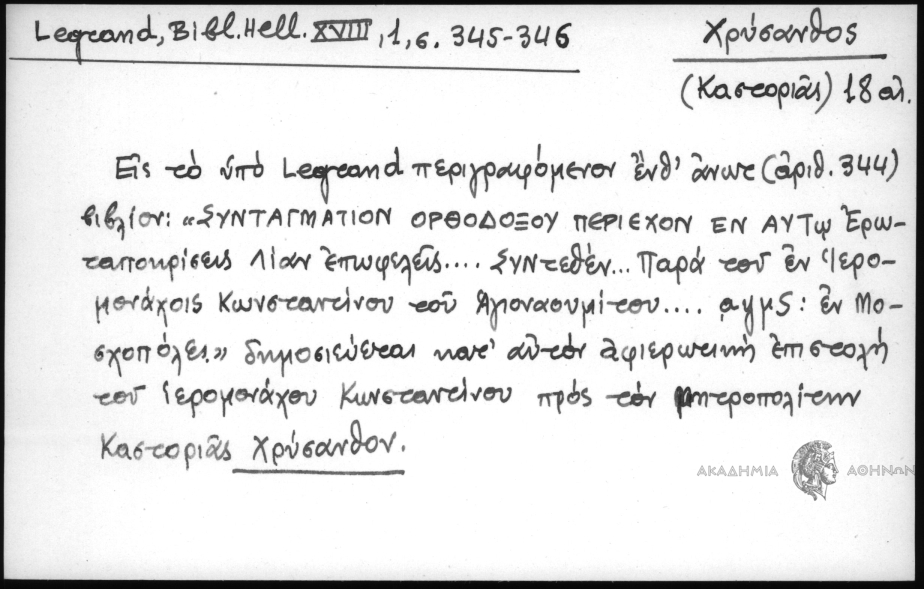 Legrand, Bibl. Hell. XVIII, 1, σ. 345-346
Χρύσανθος
(Καστοριᾶς) 18 αἰ.
Εἰς τὸ ὑπὸ Legrand περιγραφόμενον ἔνθ' ἄνωτ (ἀριθ. 344)
βιβλίον: «ΣΥΝΤΑΓΜΑΤΙΟΝ ΟΡΘΟΔΟΞΟΥ ΠΕΡΙΕΧΟΝ ΕΝ ΑΥΤῼ Ἐρω-
ταποκρίσεις λίαν ἐπωφελεῖς.... Συντεθὲν... Παρὰ τοῦ ἐν Ἱερο-
μονάχοις Κωνσταντίνου τοῦ Ἁγιοναουμίτου.... ͵αψμς: ἐν Μο-
σχοπόλει.» δημοσιεύεται κατ' αὐτὸν ἀφιερωτικὴ ἐπιστολὴ
τοῦ ἱερομονάχου Κωνσταντίνου πρὸς τὸν μητροπολίτην
Καστοριᾶς Χρύσανθον.
ΑΚΑΔΗΜΙΑ ΑΘΗΝΩΝ